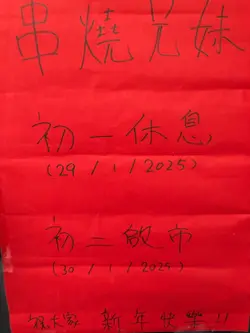 串燒兄妹
初一休息
(29/1/2025)
初二啟市
(30/1/2025)
祝大家 新年快樂!!